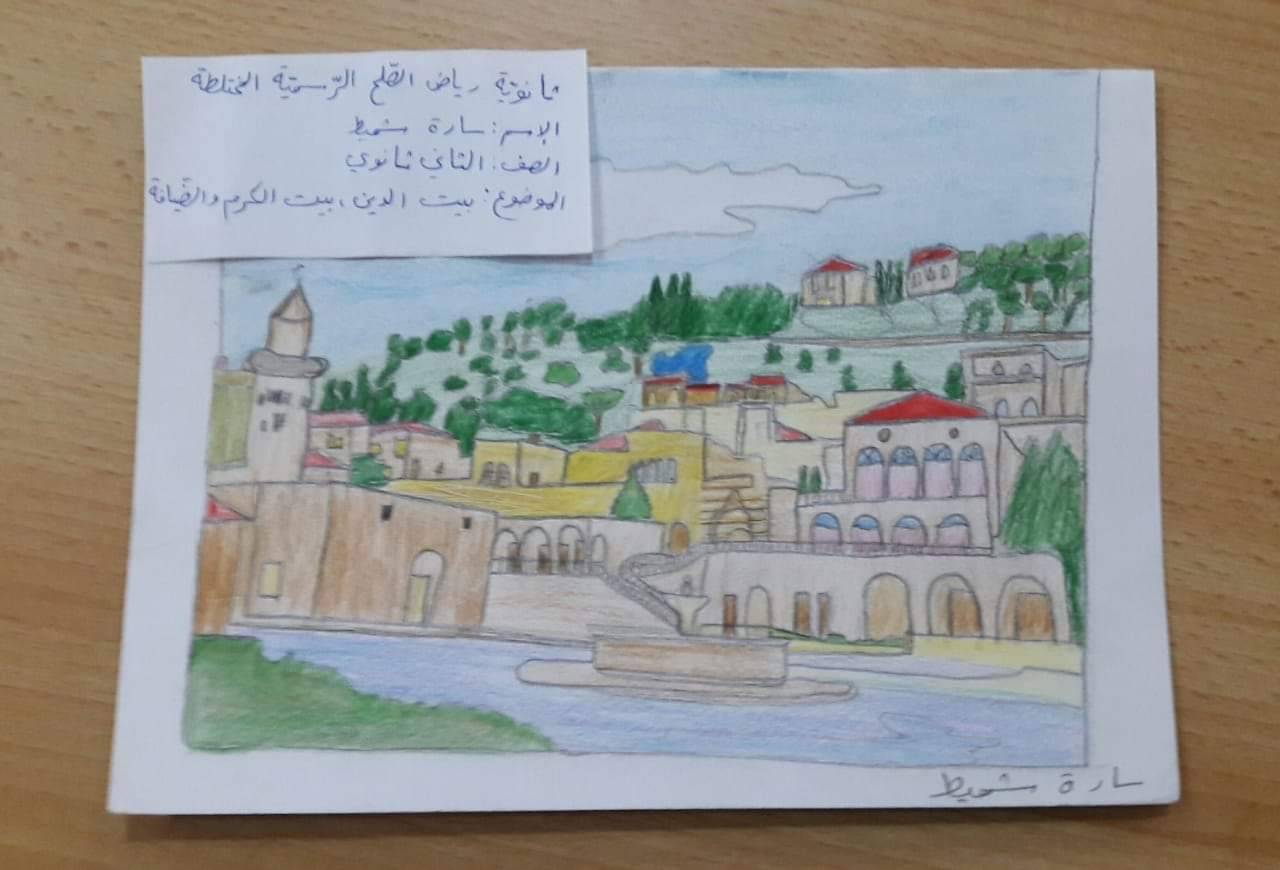 ثانويّة رياض الصّلح الرّسميّة المختلطة
الإسم: سارة شميط
الصف: الثاني ثانوي
الموضوع: بيت الدين، بيت الكرم والضّيافة
سارة شميط